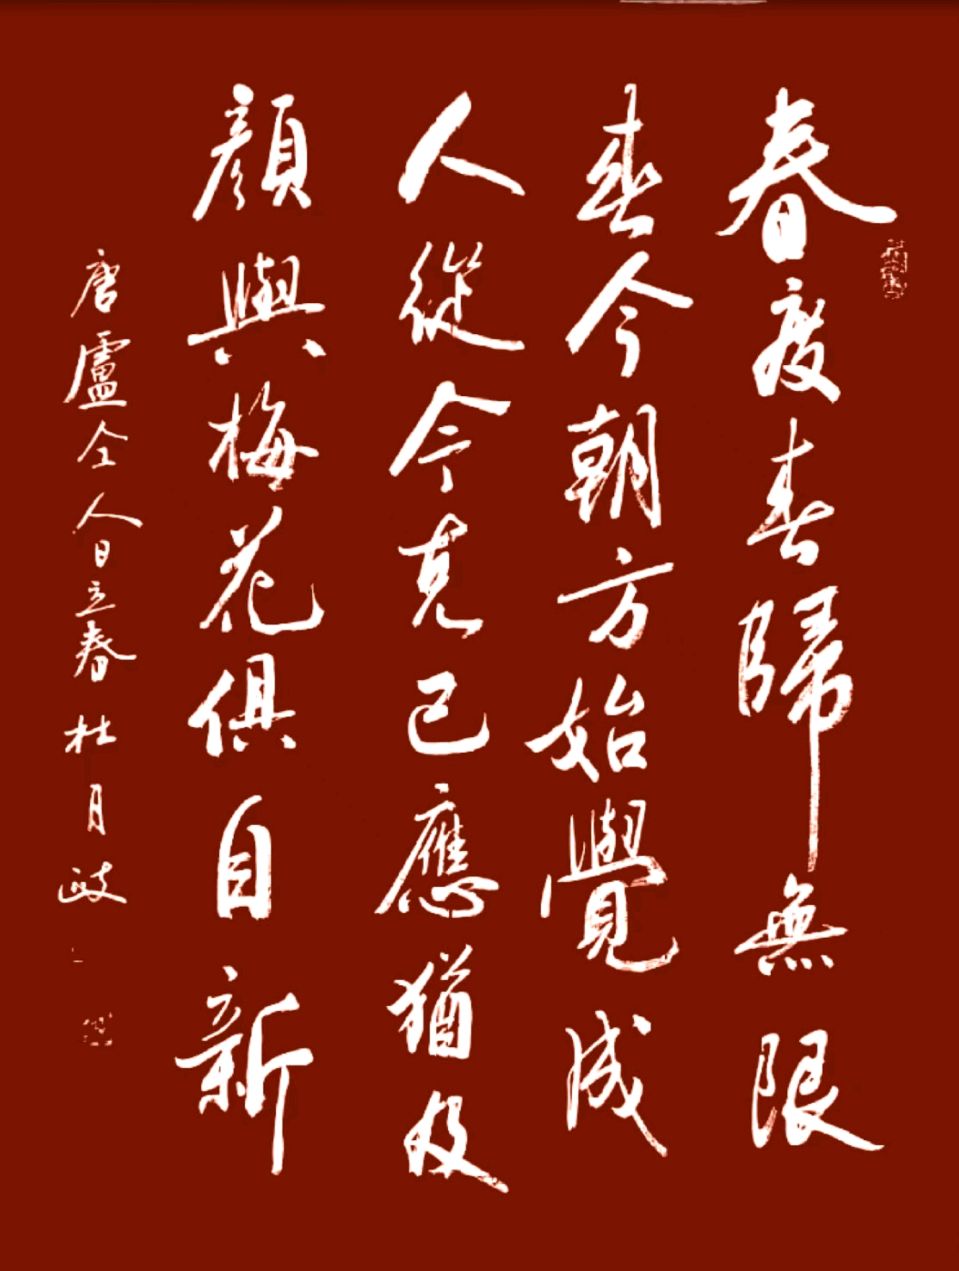 春度春歸無限
春今朝方始覺成
人從今克己應猶及
顏與梅花俱自新
唐盧仝人日立春杜月